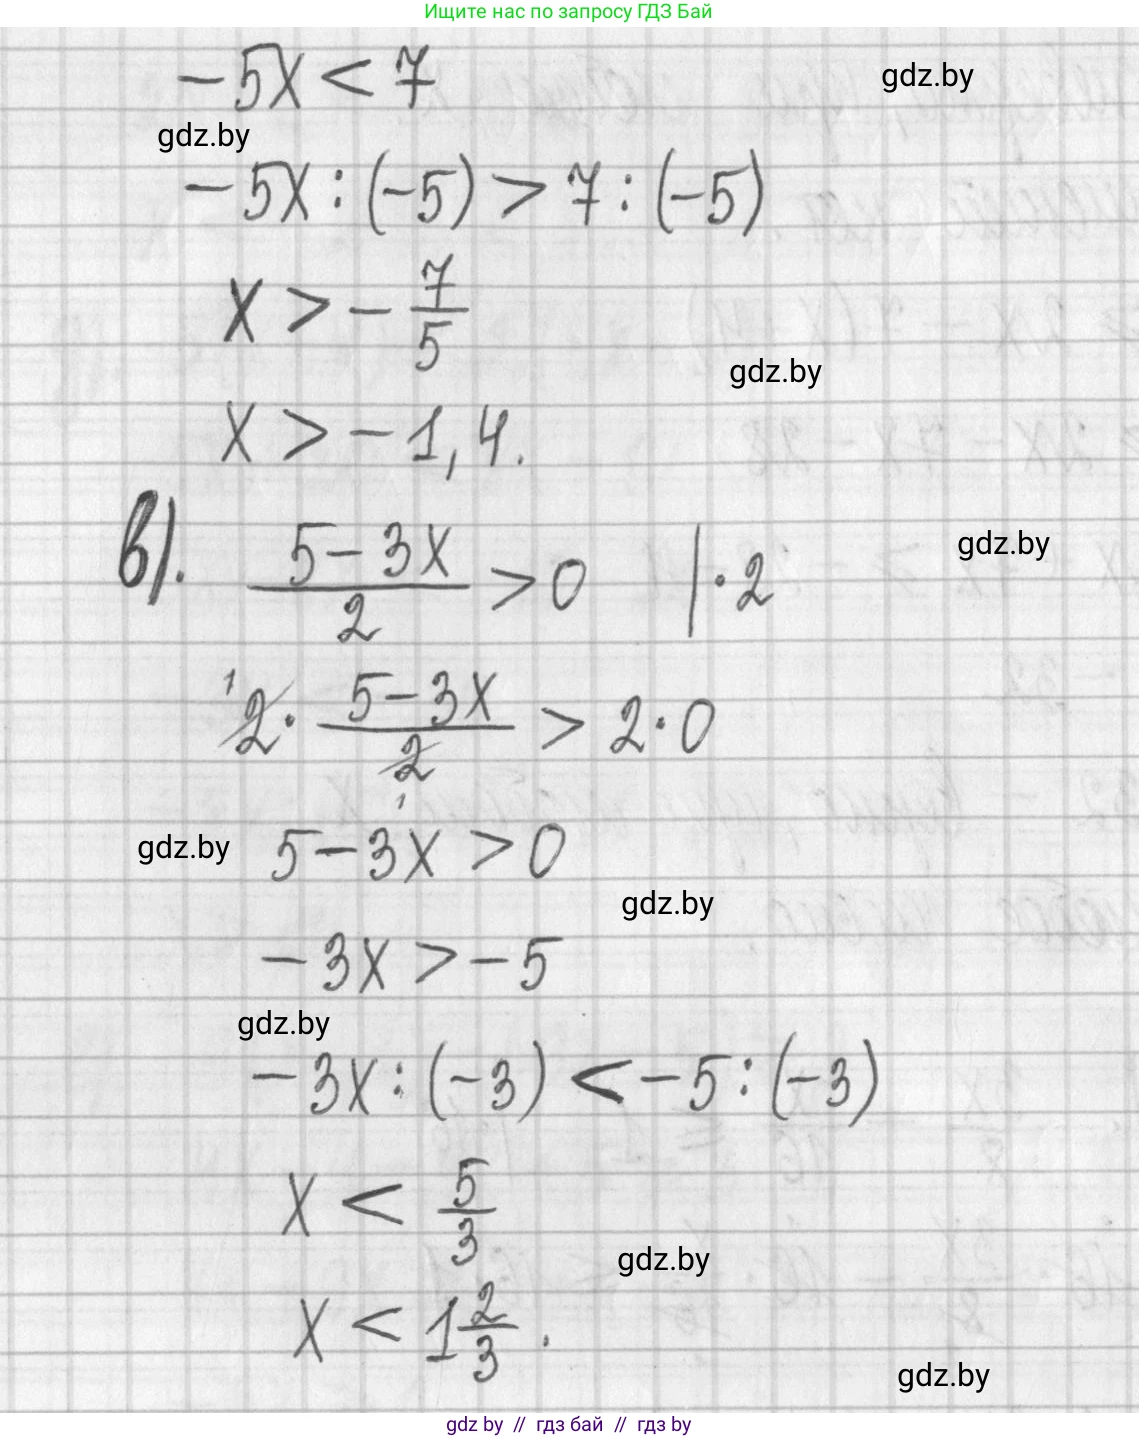 Ищите нас по запросу ГДЗ Бай
-5x < 7
gdz.by
gdz.by
-5x : (-5) > 7 : (-5)
x > -7/5
gdz.by
x > -1,4.
в). (5-3x)/2 > 0 | · 2
gdz.by
¹2 · (5-3x)/2₁ > 2 · 0
gdz.by
5-3x > 0
gdz.by
-3x > -5
gdz.by
-3x : (-3) < -5 : (-3)
x < 5/3
gdz.by
x < 1 2/3 .
gdz.by
gdz by // гдз бай // гдз by